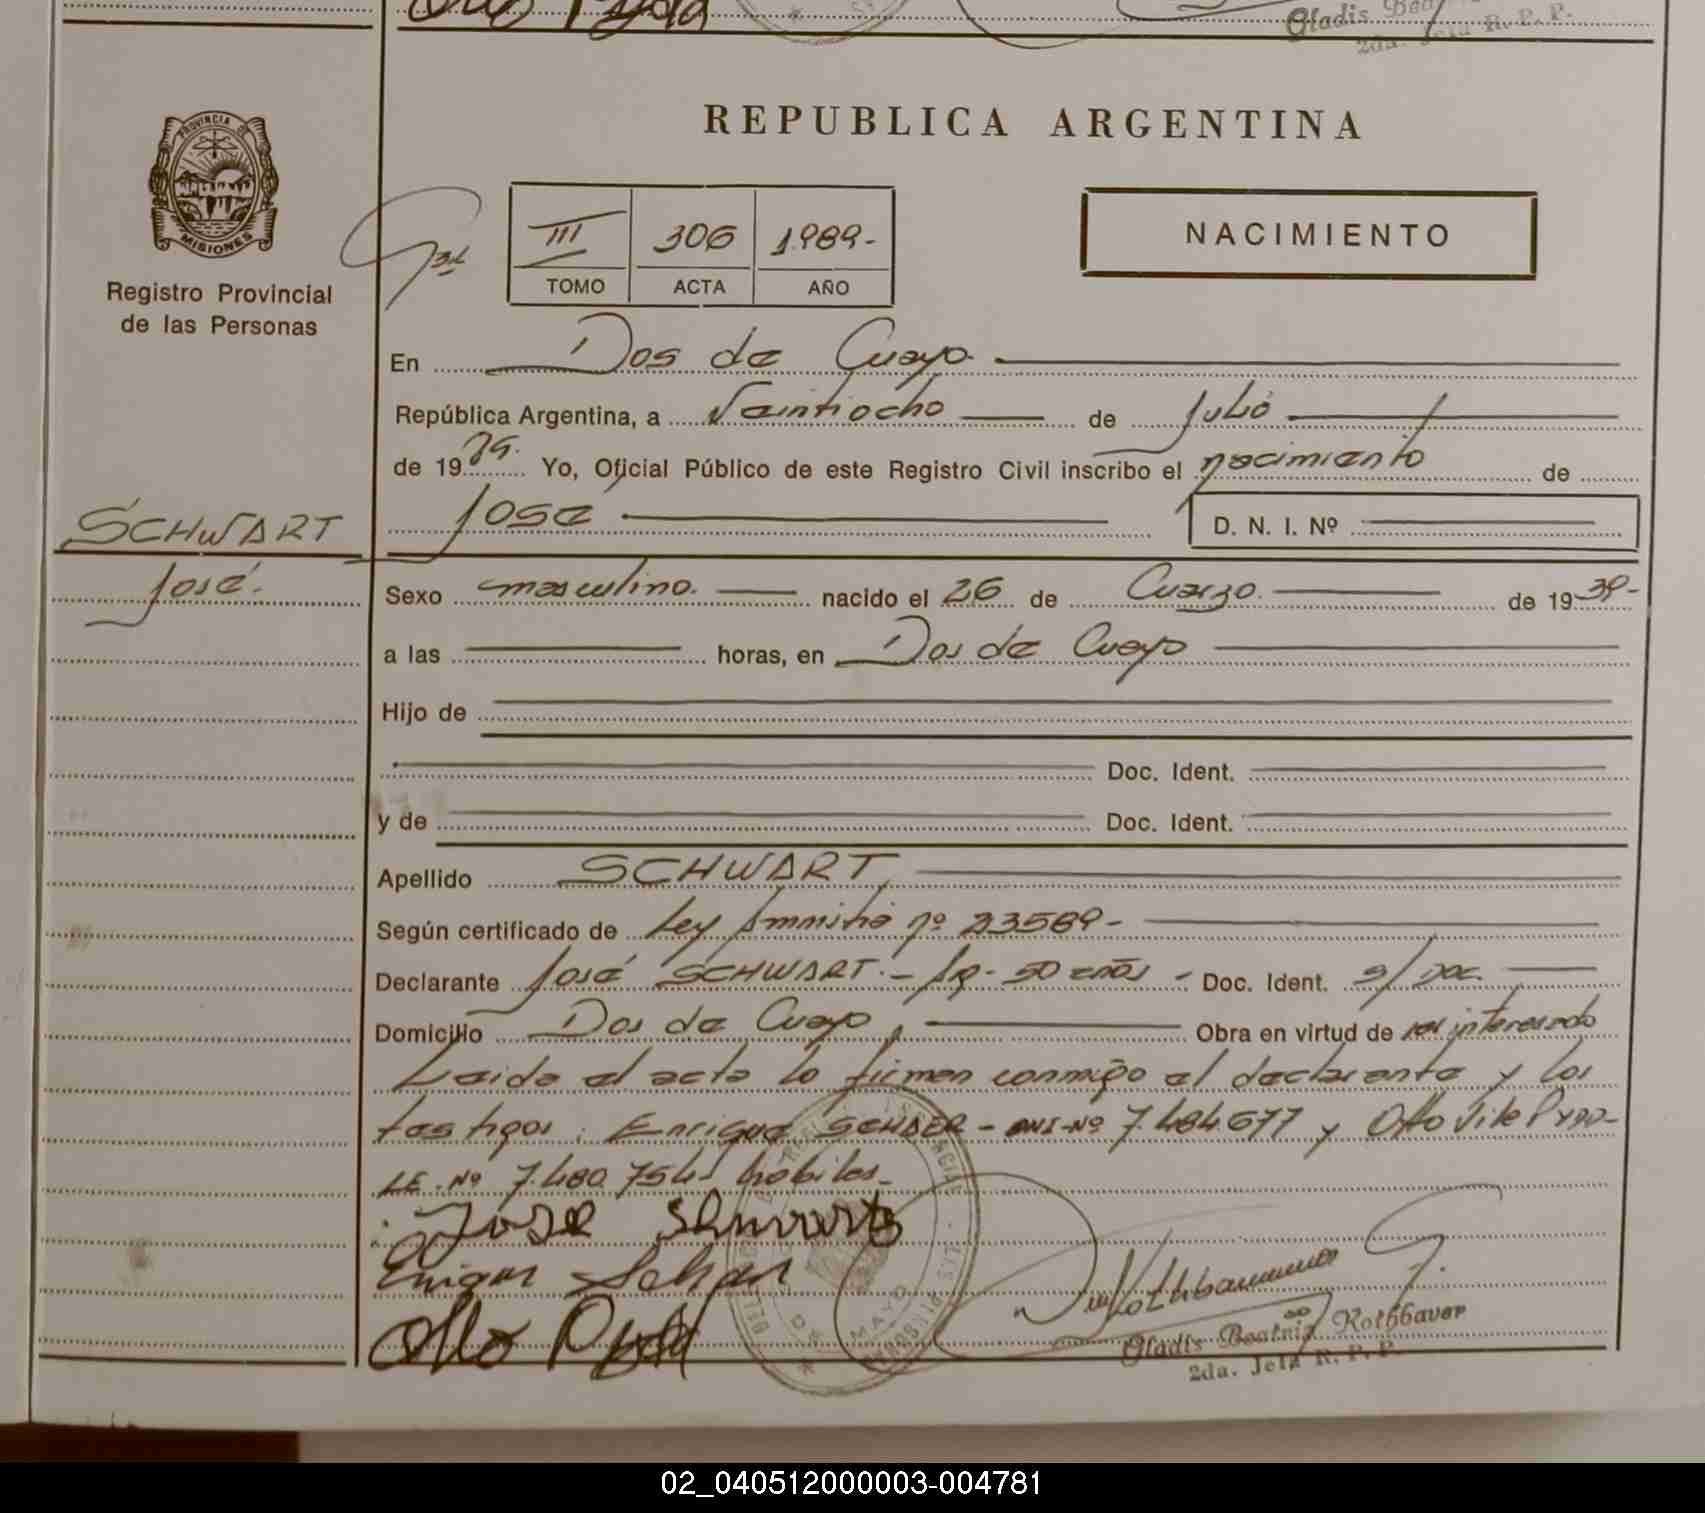 Gladis Bea
2da. Jefa R. P. P.
REPUBLICA ARGENTINA
PROVINCIA DE
MISIONES
Registro Provincial
de las Personas
III 306 1989-
TOMO ACTA AÑO
NACIMIENTO
En Dos de Mayo
República Argentina, a Veintiocho de Julio
de 19 89. Yo, Oficial Público de este Registro Civil inscribo el nacimiento de
José D. N. I. Nº
SCHWART
José.
Sexo masculino. nacido el 26 de Marzo. de 19 39-
a las horas, en Dos de Mayo
Hijo de
Doc. Ident.
y de Doc. Ident.
Apellido SCHWART
Según certificado de Ley Amnistía nº 23589-
Declarante José SCHWART.- Ar- 50 años - Doc. Ident. s/Doc.
Domicilio Dos de Mayo, Obra en virtud de ser interesado
Leida el acta lo firman conmigo el declarante y los
testigos: Enrique - DNI-Nº 7.484.677 y Otto
LE.Nº 7.480.754 habiles.
José
Otto
DOS DE MAYO
Gladis Beatriz Rothbauer
2da. Jefa R. P. P.
02_040512000003-004781